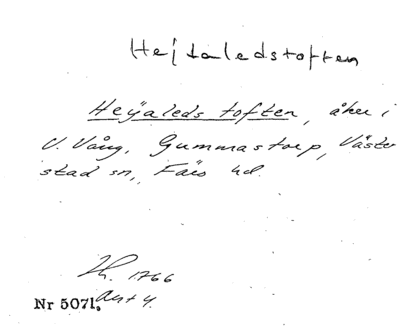 Hejtaledstoften
Heÿaleds toften, åker i
V. Vång, Gummastorp, Väster
stad sn, Färs hd.
Lh. 1766
Akt 4.
Nr 5071.